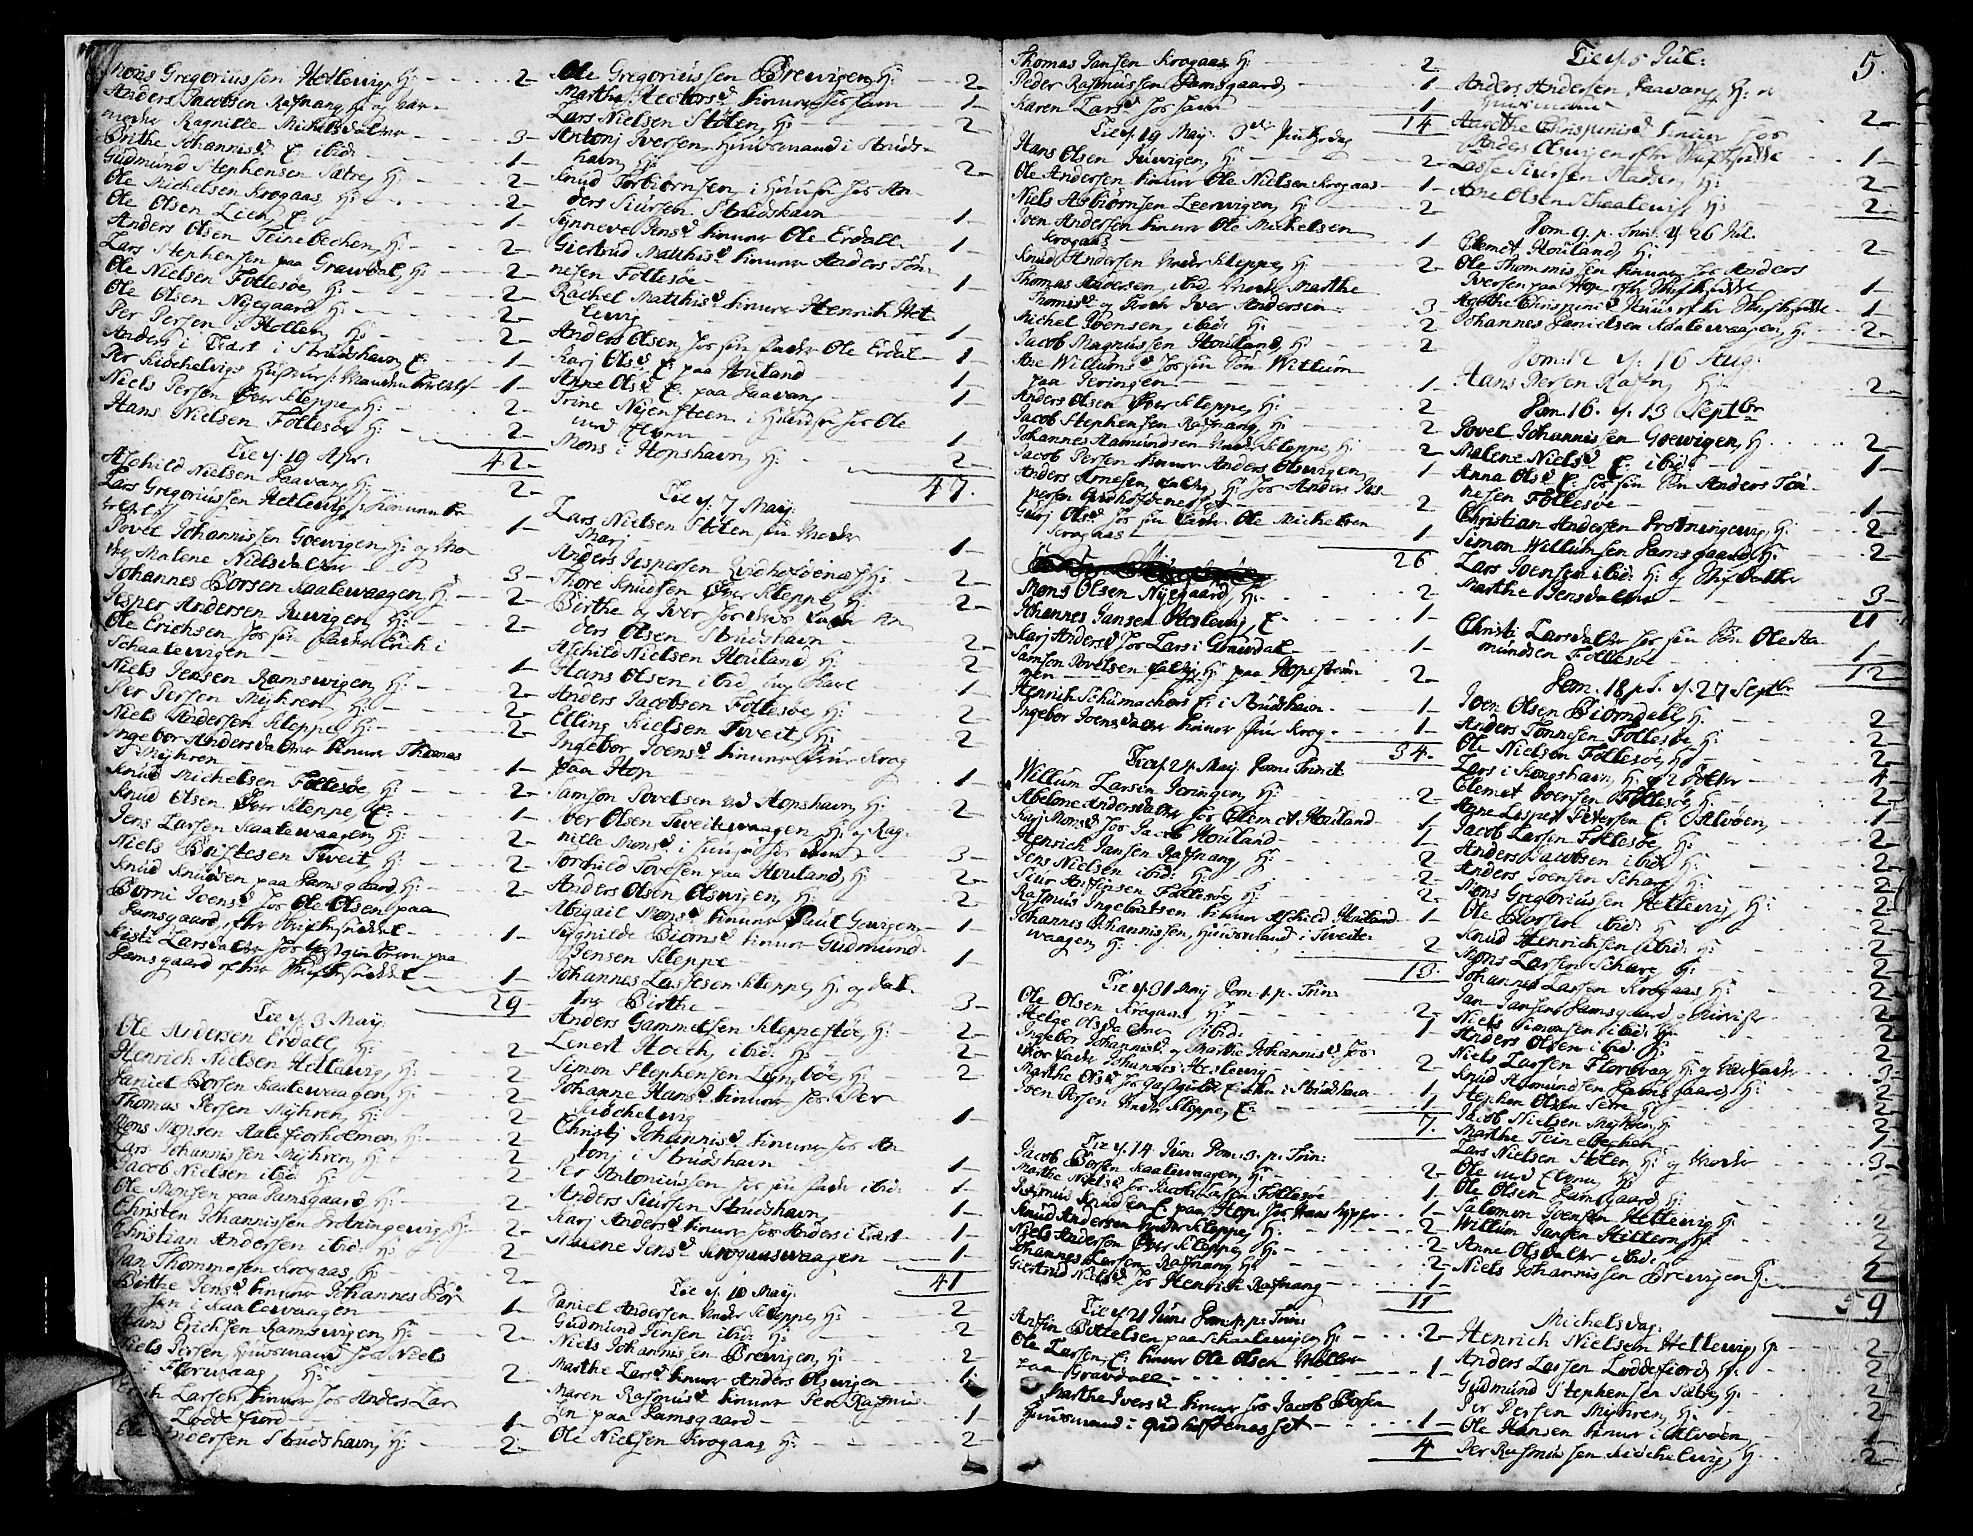 Mons Gregoriussen Hetlewig, H: 2
Anders Jacobsen Rafnang
Ragnille Michelsdatter 3
Brithe Johannisd E. ibid: 1
Gudmund Stephensen Sætre, H: 2
Ole Michelsen Krogaas, H: 2
Ole Olsen Lieh, E 1
Anders Olsen Teinebechen, H: 2
Lars Stephensen paa Gravdal, H: 2
Ole Nielsen Follesøe, H: 2
Ole Olsen Nyegaard, H: 2
Per Persen i Holten, H: 2
Anders i Træet i Strudshavn, E. 1
Per Kiöchelvigs 1
Niels Persen Øvre Kleppe, H: 2
Hans Nielsen Follesøe H: 2
42
Tie d. 19 Apr.
Aschild Nielsen Haavang H: 2
Lars Gregoriussen Hetlewig 1
Povel Johannissen Goewigen, H: og
Malene Nielsdatter 3
Johannes Børsen Kaatewaagen, H: 2
Jesper Andersen Juwigen, H: 2
Ole Erichsen for sin fader Erich i
Schaalewigen 1
Niels Jensen Ramswigen, H: 2
Per Persen Myhren, H: 2
Niels Andersen Kleppe, H: 2
Ingebor Andersdatter tienur Thomas
Myhren 1
Knud Michelsen Follesøe, H: 2
Knud Olsen Øvre Kleppe, E: 1
Jens Larsen Kaatewaagen, H: 2
Niels Tveit, H: 2
Knud Knudsen paa Ramsgaard, H: 2
Børni Joensd for Ole Olsen paa
Ramsgaard, 1
Kisti Larsdatter for
Ramsgaard 1
29
Tie d. 3 May.
Ole Andersen Erdall, H: 2
Henrich Nielsen Hetlewig, H: 2
Daniel Børsen Kaatewaagen, H: 2
Thomas Persen Myhren, H: 2
Mons Monsen Aalefiorholmen, H: 2
Lars Johannissen Myhren, H: 2
Jacob Nielsen ibid H: 2
Ole Monsen paa Ramsgaard, H: 2
Christen Johannissen Drotningewig, H: 2
Christian Andersen ibid: H: 2
Jan Thommesen Krogaas, H: 2
Birthe Jensd tienur Johannes Bør
sen i Kaatewaagen 1
Hans Erichsen Ramswigen, H: 2
Niels Persen, Huusmand for Niels
i Florwaag, H: 2
Erich Larsen tienur for Anders Lar
Loddefiord 1
Ole Andersen Strudshavn, H: 2
Ole Gregoriussen Brewigen, H: 2
Marthe Hectorsd tienur for ham 1
Lars Nielsen Støten, H: 2
Antonj Iversen, Huusmand i Struds-
havn, H: 2
Knud Torbiørnsen, i Huuset for An
ders Siursen Strudshavn 1
Synneve Jensd tienur Ole Erdall 1
Giertrud Matthisd tienur Anders Tøn-
nesen Follesøe 1
Rachel Matthisd tienur Henrich Het-
lewig 1
Anders Olsen for sin fader Ole Erdal 1
Karj Olsd E: paa Houland 1
Anne Olsd E. paa Haavang 1
Trine Nyensteen i Huuset for Ole
ved Elven 1
Mons i Hopshavn, H: 2
47.
Tie d. 7 May.
Lars Nielsen Støten sin Moder
Marj 1
Anders Jespersen Qvidholdenæs H: 2
Thore Knudsen Øvre Kleppe, H: 2
Birthe og Iver for deres fader An
ders Olsen Strudshavn 2
Aschild Nielsen Houland H: 2
Hans Olsen ibid. ung Karl 1
Anders Jacobsen Follesøe, H: 2
Elling Nielsen Tveit, H: 2
Ingebor Joensd tienur Siur Krog
paa Hop 1
Samson Povelsen ved Hopshavn, H: 2
Iver Olsen Tveitewaagen H: og Rag-
nille Monsd i huuset for dem 3
Torchild Tovesen paa Houland, H: 2
Anders Olsen Olswigen, H: 2
Abigail Monsd tienur Paul Gowigen 1
Sygnilde Biørnsd tienur Gudmund
Jensen Kleppe 1
Johannes Lassesen Kleppe, H: og dat-
ter Birthe 3
Anders Gammelsen Kleppestøe, H: 2
Lenert Hoch, ibid: H: 2
Simon Stephensen Lyngbøe, H: 2
Johanne Hansd tienur for Per
Kiöchelvig 1
Christj Johannisd tienur for An
tonj i Strudshavn 1
Per Antoniussen for sin fader ibid: 1
Anders Siursen Strudshavn 1
Karj Andersd tienur for Anders i Træet 1
Malene Jensd Krogaaswaagen 1
41
Tie d. 10 May.
Daniel Andersen Nedre Kleppe, H: 2
Gudmund Jensen ibid: H: 2
Niels Johannissen Brewigen, H: 2
Marthe Larsd tienur Anders Olswigen 1
Maren Rasmusd tienur Per Rasmus-
sen paa Ramsgaard 1
Ole Nielsen Krogaas, H: 2
Thomas Jansen Krogaas H: 2
Peder Rasmussen Ramsgaard, 1
Karen Larsd for ham 1
14
Tie d. 19 May: 3die Pintzedag
Hans Olsen Juwigen, H: 2
Ole Andersen tienur Ole Nielsen Krogaas 1
Niels Asbiørnsen Leerwigen, H: 2
Iven Andersen tienur Ole Michelsen
Krogaas 1
Knud Andersen Nedre Kleppe, H: 2
Thomas Andersen, ibid. Marthe
Thomasd og Iver Andersen 3
Michel Joensen, ibid: H: 2
Jacob Magnussen Houland, H: 2
Ane Willumsd for sin Søn Willum
paa Joringen 1
Anders Olsen Øvre Kleppe, H: 2
Jacob Stephensen Rafnang, H: 2
Johannes Hamundsen Nedre Kleppe, H: 2
Jacob Persen tienur Anders Olswigen 1
Anders Arnesen, H: for Anders Jes-
persen Qvidholdenæsset 2
Gurj Olsd for sin fader Ole Michelsen
Krogaas 1
26
Mons Olsen Nyegaard, H: 2
Johannes Jansen Heslewig, E. 1
Karj Andersd for Lars i Gravdal 1
Samson Povelsen H: paa Hopestrøm-
men 2
Henrich Schumachers E: i Strudshavn 1
Ingebor Joensdatter tienur Siur Krog 1
34.
Tie d. 24 May Dom: Trinit.
Willum Larsen Joringen, H: 2
Abelone Andersdatter for Clemet Houland 1
Karj Monsd for Jacob Houland 1
Henrich Jansen Rafnang H: 2
Jens Nielsen ibid: H: 2
Siur Anfinsen Follesøe, H: 2
Rasmus Ingebrictsen tienur Aschild Houland 1
Johannes Johannissen, Huusmand i Tveite-
waagen H: 2
13.
Tie d. 31 Maij Dom. 1. p. Trin:
Ole Olsen Krogaas H: 2
Helge Olsdatter ibid: 1
Ingebor Johannisd og Marthe Johannisd for
fader Johannis Heslewig 2
Marthe Olsd for i Strudshavn 1
Joen Persen Nedre Kleppe, E: 1
7.
Tie d. 14 Jun. Dom. 3. p. Trin:
Jacob Børsen Kaatewaagen, H: 2
Marthe Nielsd for Jacob Larsen Follesøe 1
Rasmus Knudsen E. paa Hop for Hans 1
Knud Andersen Nedre Kleppe, H: 2
Niels Andersen Øvre Kleppe, H: 2
Johannes Larsen Rafnang H: 2
Giertrud Nielsd for Henrich Rafnang 1
11
Tie d. 21 Jun: Dom. 4. p. Trin:
Anfin Bottelsen paa Schaalewigen H: 2
Ole Larsen, E: tienur Ole Olsen Møller
paa Gravdall 1
Marthe Iversd tienur for Jacob Børsen
Huusmand i Qvidholdenæsset 1
4
5.
Tie d. 5 Jul:
Anders Andersen Haavang H:
Huusmand 2
Agethe Chrispinisd tienur for
Anders Olswigen 1
Lasse Siursen Haden, H: 2
Arne Olsen Schaalewig, H: 2
Dom. 9. p. Trin. d. 26 Jul.
Clemet Houland, H: 2
Ole Thommissen tienur for Anders
Iversen paa Hop 1
Agethe Chrispinisd 1
Johannes Danielsen Kaatewaagen, H: 2
Dom. 12 d. 16 Aug:
Hans Persen Rafn, H: 2
Dom. 16. d. 13 Septbr
Povel Johannissen Goewigen, H 2
Malene Nielsd E: ibid: 1
Anna Olsd E: for sin Søn Anders Tøn-
nesen Follesøe 1
Christian Andersen Drotningewig, H: 2
Simon Willumsen Ramsgaard H: 2
Lars Joensen ibid: H: og
Marthe Jensdatter 3
11
Christi Larsdatter for sin Søn Ole Ha
mundsen Follesøe 1
12
Dom. 18 p. T. d. 27 Septbr
Joen Olsen Biørndall, H: 2
Anders Tønnesen Follesøe H: 2
Ole Nielsen Follesøe H: 2
Lars i Kongshavn, H: og 2 døttre 4
Clemet Joensen Follesøe H: 2
Anne Lisbet Petersen E: i Alvøen, 1
Jacob Larsen Follesøe, H: 2
Anders Jacobsen ibid: H: 2
Anders Joensen Schare H: 2
Mons Gregoriussen Hetlewig, H: 2
Ole Børsen ibid: H: 2
Knud Henrichsen ibid: H: 2
Mons Larsen Schare H: 2
Johannes Larsen Krogaas, H: 2
Jan Jansen Ramsgaard 2
Niels Simonsen ibid: H: 2
Anders Olsen ibid. H: 2
Niels Larsen Florewaag H: og 3
Knud Asmundsen Ramsgaard, H: 2
Stephen Olsen Setre H: 2
Jacob Nielsen Myhren, H: 2
Marthe Teinebechen 1
Lars Nielsen Støten H: og Moder 3
Ole ved Elven, H:
Ole Olsen Ramsgaard, H: 2
Salomon Joensen Hetlewig H: 2
Willum Jansen Hilleren, H: 2
Anne Olsdatter ibid:
Niels Johannissen Brewigen H: 2
59
Michelsdag.
Henrich Nielsen Hetlewig, H: 2
Anders Larsen Loddefiord, H: 2
Gudmund Stephensen Sætre, H: 2
Per Persen Myhren, H: 2
Ole Hansen tienur i Alvøen, 1
Per Rasmussen Kiöchelwig, H 2